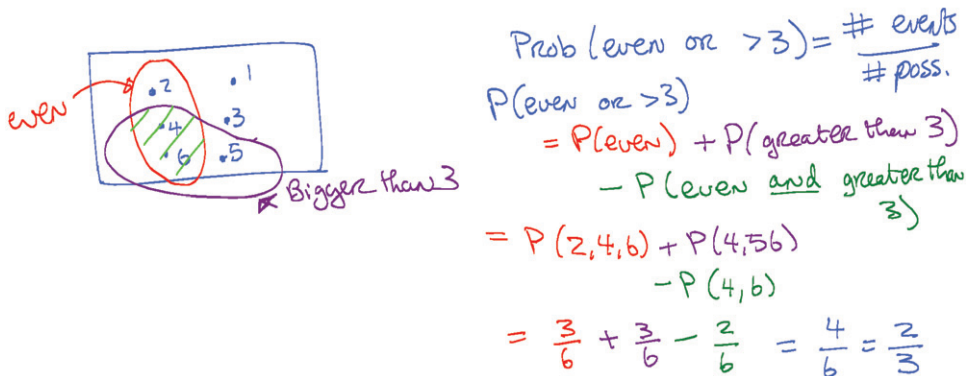 even
2
1
4
3
6
5
Bigger than 3
Prob (even or >3) = # events / # poss.
P(even or >3)
= P(even) + P(greater than 3)
- P(even and greater than
3)
= P(2,4,6) + P(4,56)
- P(4,6)
= 3/6 + 3/6 - 2/6 = 4/6 = 2/3